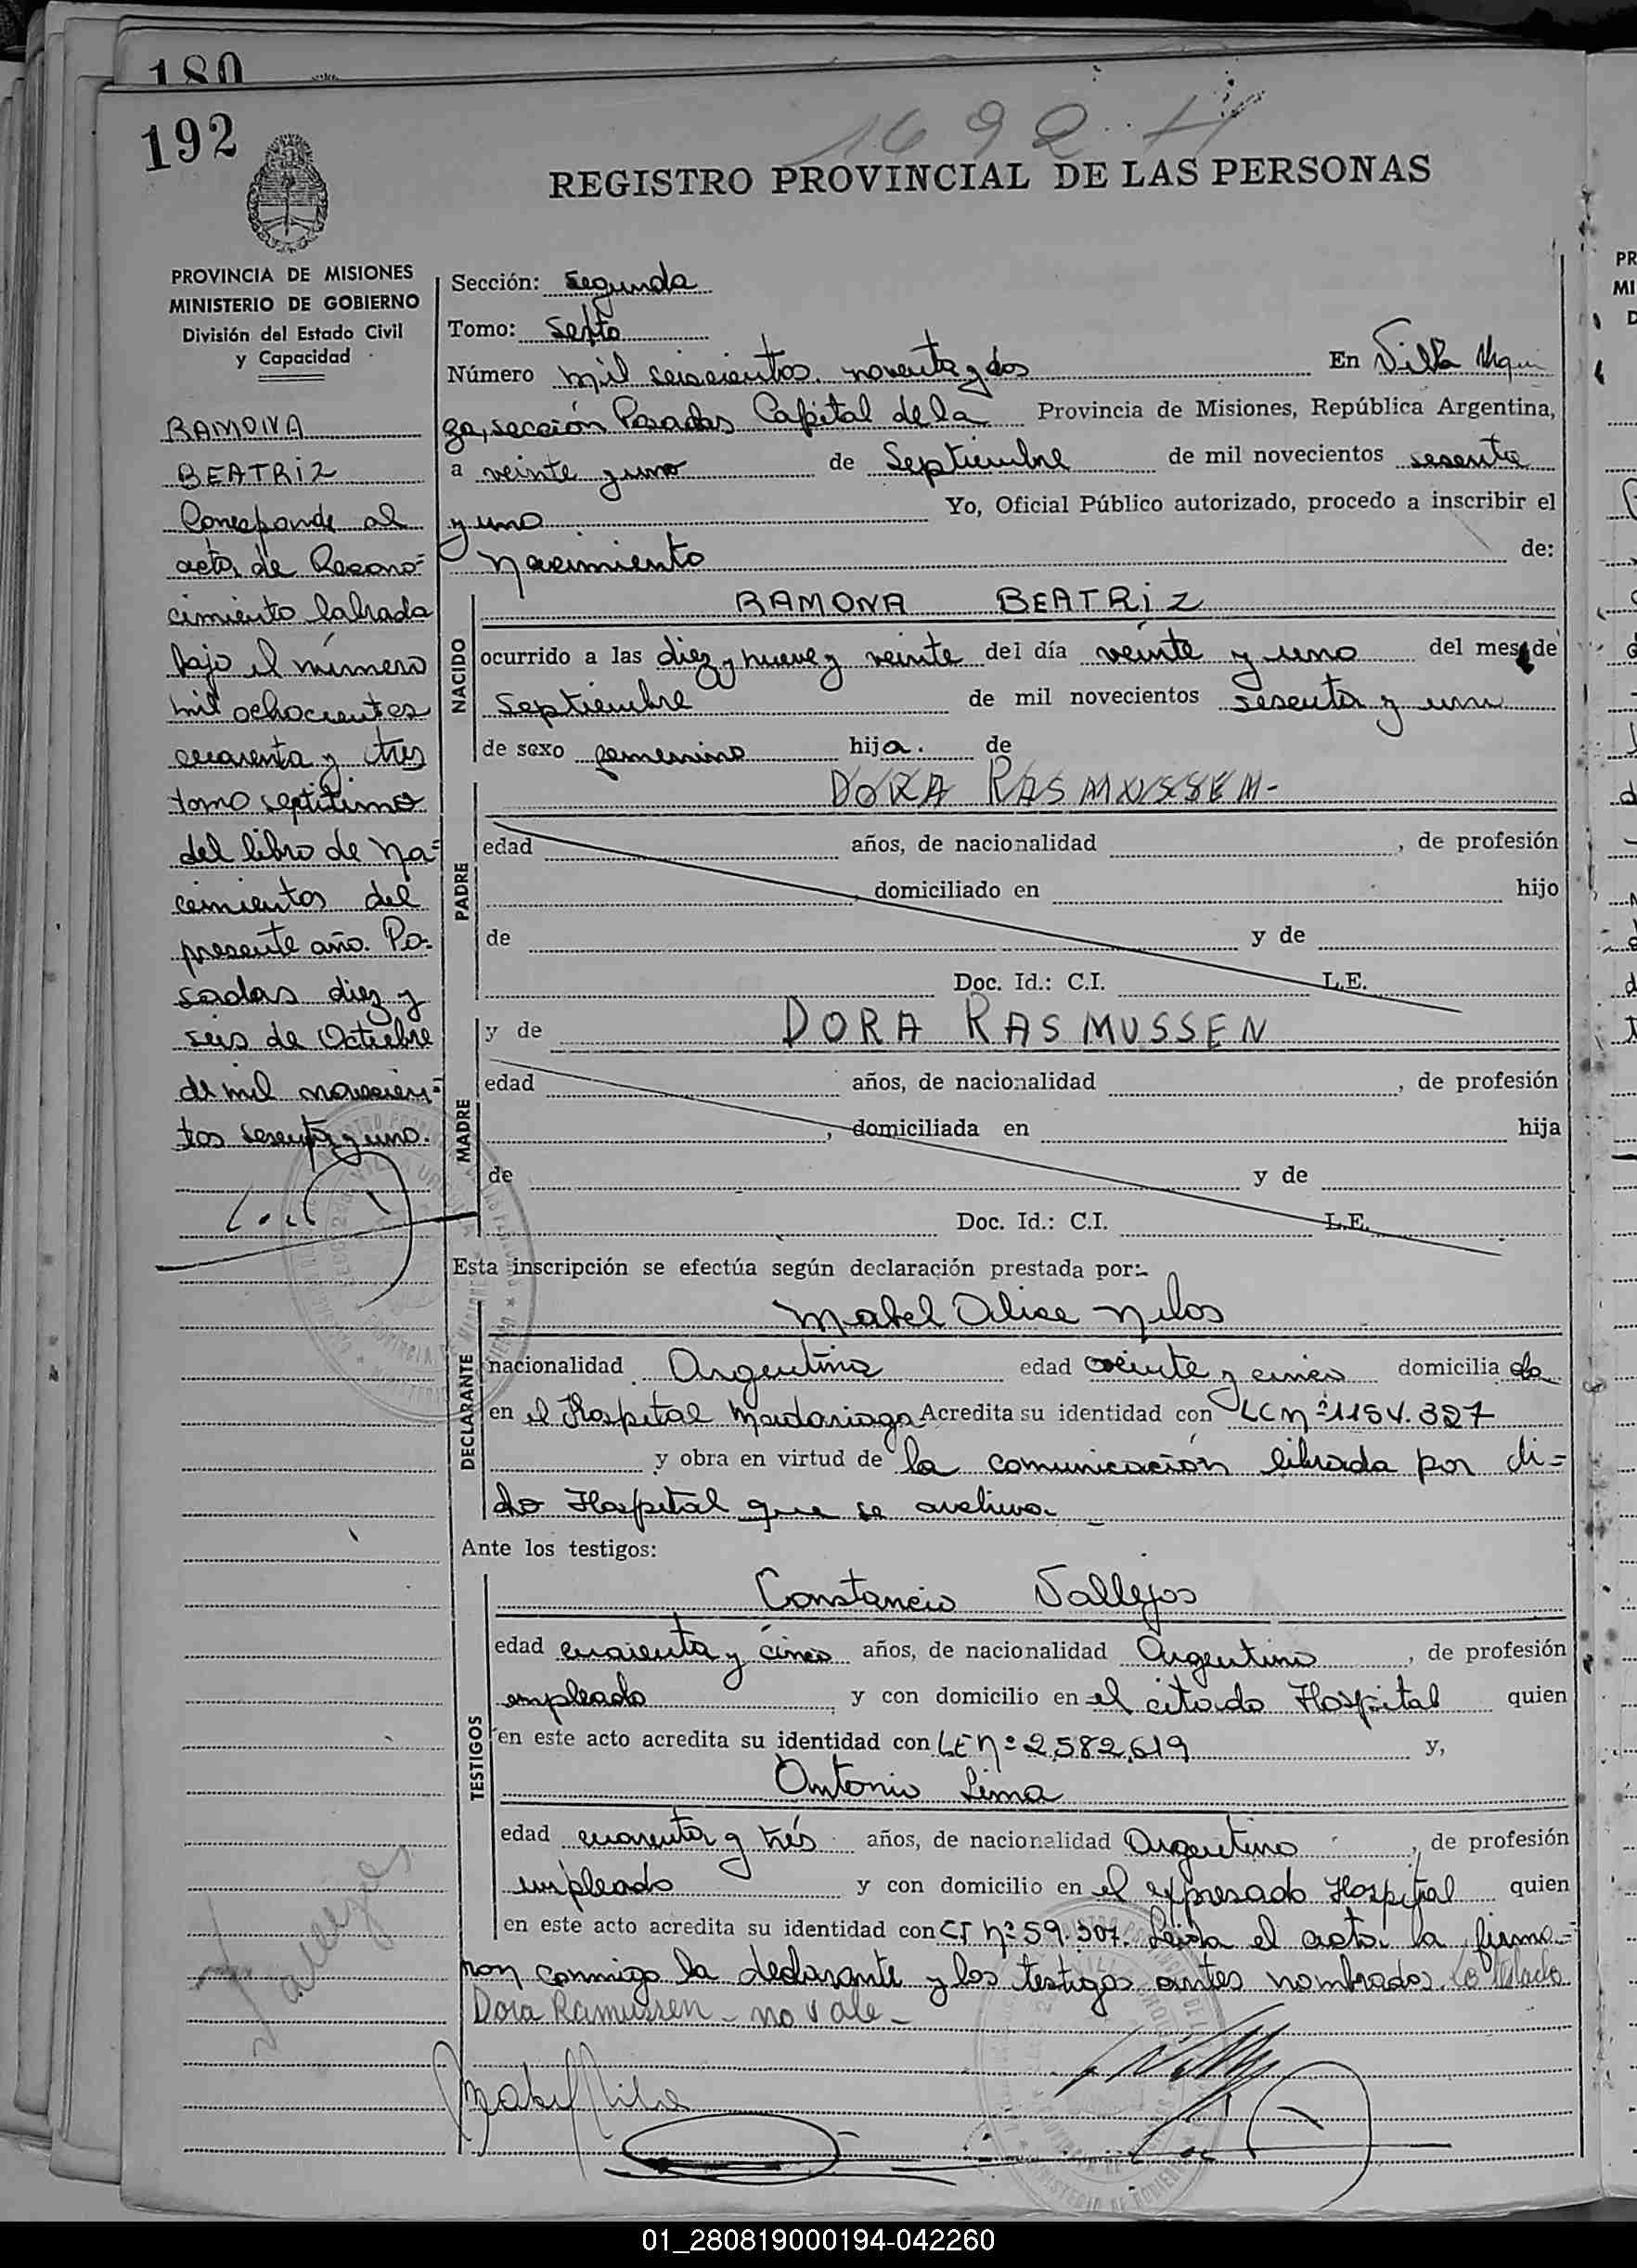 180
192
1692
REGISTRO PROVINCIAL DE LAS PERSONAS
PROVINCIA DE MISIONES
MINISTERIO DE GOBIERNO
División del Estado Civil
y Capacidad
RAMONA
BEATRIZ
Corresponde al
acta de Recono=
cimiento labrada
bajo el número
mil ochocientos
cuarenta y tres
tomo septitimo
del libro de na=
cimientos del
presente año. Po-
sadas diez y
seis de Octubre
de mil novecien=
tos sesenta y uno.
Sección: Segunda
Tomo: Sexto
Número mil seiscientos noventa y dos En Villa Urqui
za, sección Posadas Capital de la Provincia de Misiones, República Argentina,
a veinte y uno de Septiembre de mil novecientos sesenta
y uno Yo, Oficial Público autorizado, procedo a inscribir el
nacimiento de:
NACIDO
RAMONA BEATRIZ
ocurrido a las diez y nueve y veinte del día veinte y uno del mes de
Septiembre de mil novecientos sesenta y uno
de sexo femenino hija. de
PADRE
DORA RASMUSSEN-
edad años, de nacionalidad , de profesión
, domiciliado en hijo
de y de
Doc. Id.: C.I. L.E.
MADRE
y de DORA RASMUSSEN
edad años, de nacionalidad , de profesión
, domiciliada en hija
de y de
Doc. Id.: C.I. L.E.
Esta inscripción se efectúa según declaración prestada por:-
DECLARANTE
Mabel Alice Nilos
nacionalidad Argentina edad veinte y cinco domicilia da
en el Hospital Madariaga Acredita su identidad con LC nº 1154.327
y obra en virtud de la comunicación librada por di=
cho Hospital que se archiva
Ante los testigos:
TESTIGOS
Constancio Vallejos
edad cuarenta y cinco años, de nacionalidad Argentino , de profesión
empleado , y con domicilio en el citado Hospital quien
en este acto acredita su identidad con LE nº 2,582,619 y,
Antonio Lima
edad cuarenta y trés años, de nacionalidad Argentino , de profesión
empleado y con domicilio en el expresado Hospital quien
en este acto acredita su identidad con CI nº 59.307. Leída el acta la firma=
ron conmigo la declarante y los testigos antes nombrados. Lo testado
Dora Ramussen - no vale -
01_280819000194-042260